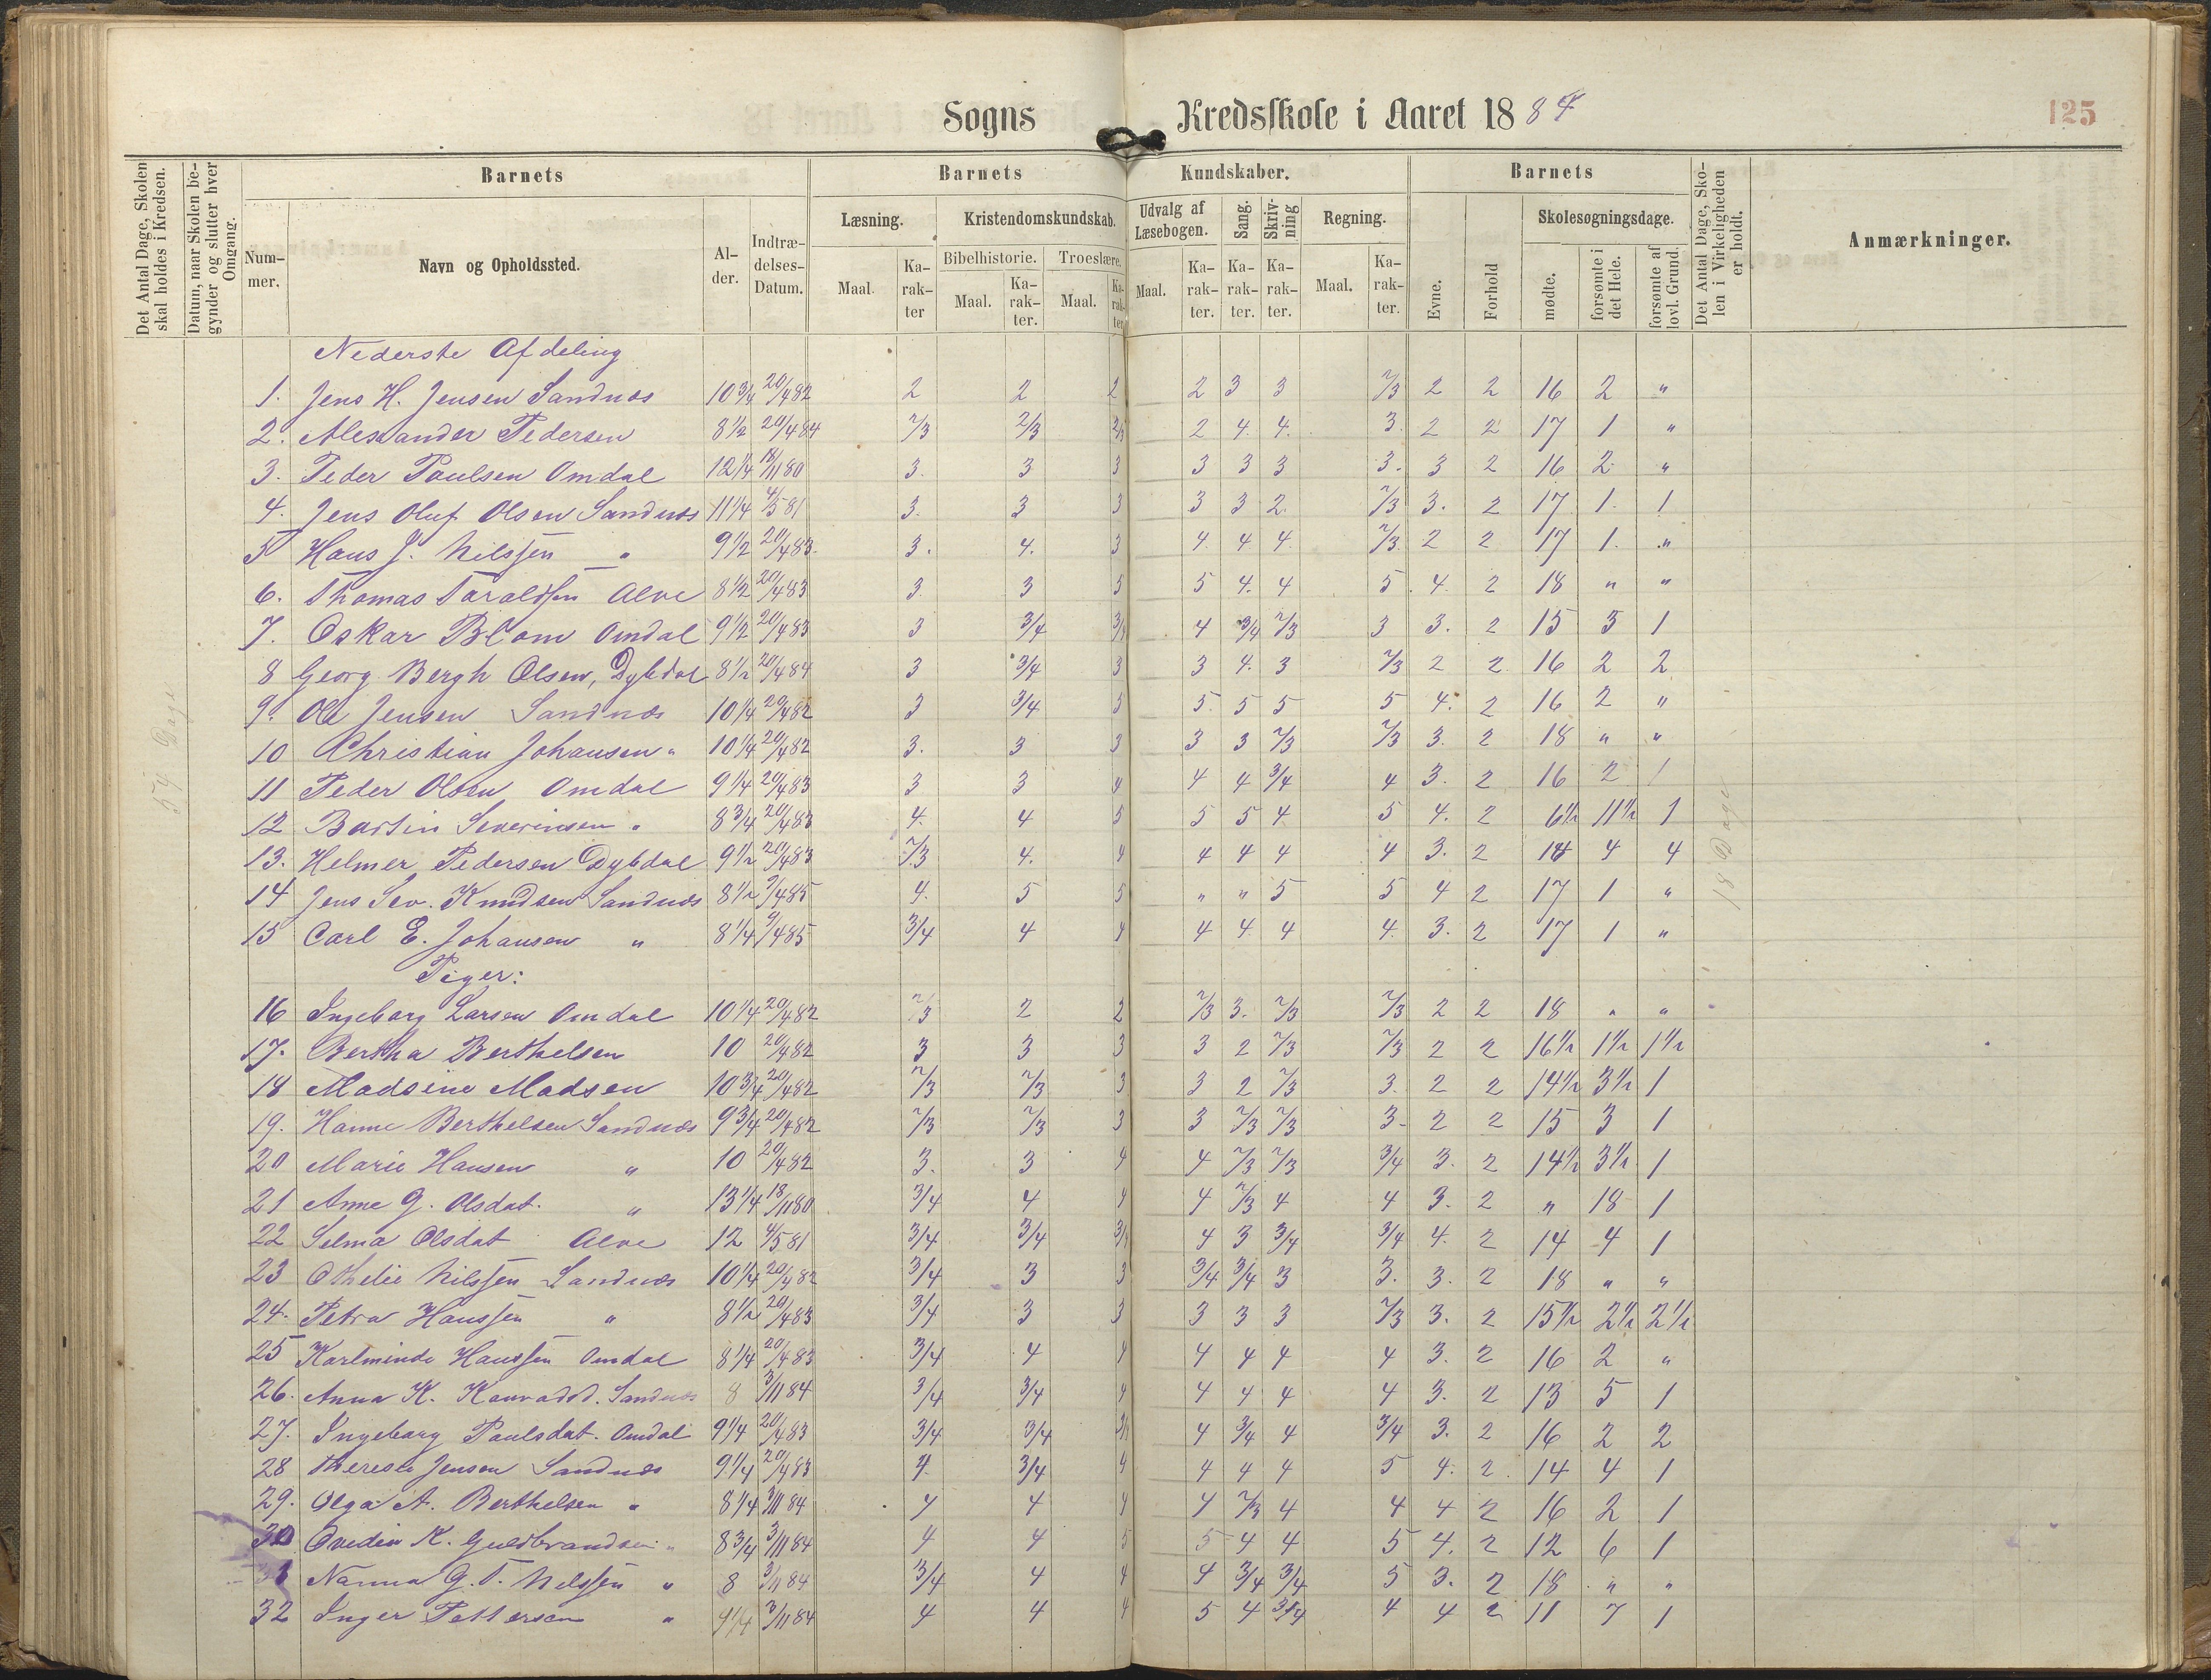 Sogns Kredsskole i Aaret 1884
125
Det Antal Dage, Skolen skal holdes i Kredsen.
Datum, naar Skolen begynder og slutter hver Omgang.
Barnets
Nummer.
Navn og Opholdssted.
Alder.
Indtrædelses-Datum.
Barnets Kundskaber.
Læsning.
Maal.
Karakter
Kristendomskundskab.
Bibelhistorie.
Maal.
Karakter.
Troeslære.
Maal.
Karakter
Udvalg af Læsebogen.
Maal.
Karakter.
Sang.
Karakter.
Skrivning
Karakter.
Regning.
Maal.
Karakter.
Barnets
Evne.
Forhold
Skolesøgningsdage.
mødte.
forsømte i det Hele.
forsømte af lovl. Grund.
Det Antal Dage, Skolen i Virkeligheden er holdt.
Anmærkninger.
54 Dage
18 Dage
Nederste Afdeling
1. Jens H. Jensen Sandnæs 10 3/4 20/4 82 2 2 2 2 3 3 2/3 2 2 16 2 "
2. Alexander Pedersen 8 1/2 20/4 84 2/3 2/3 2/3 2 4. 4. 3. 2 2 17 1 "
3. Peder Paulsen Omdal 12 1/4 18/11 80 3. 3 3 3 3 3 3. 3 2 16 2 "
4. Jens Oluf Olsen Sandnæs 11 1/4 4/5 81 3. 3 3 3 3 2. 2/3 3. 2 17 1. 1
5 Hans J. Nilssen " 9 1/2 20/4 83. 3. 4. 3 4 4 4. 2/3. 2 2 17 1. "
6. Thomas Taraldsen Alve 8 1/2 20/4 83 3. 3 5 5 4. 4 5 4. 2 18 " "
7. Oskar Blom Omdal 9 1/2 20/4 83 3 3/4 3/4 4 3/4 2/3 3 3. 2 15 3 1
8 Georg Bergh Olsen, Dybdal 8 1/2 20/4 84 3 3/4 3 3 4. 3 2/3 2 2 16 2 2
9. Ole Jensen Sandnæs 10 1/4 20/4 82 3 3/4 5 5. 5 5 5 4. 2 16 2 "
10 Christian Johansen " 10 1/4 20/4 82 3. 3 3 3 3 2/3 2/3 3. 2 18 " "
11 Peder Olsen Omdal 9 1/4 20/4 83 3 3 4 4 4 3/4 4 3. 2 16 2 1
12 Bartin Severinsen " 8 3/4 20/4 83 4. 4 5 5 5 4 5 4. 2 6 1/2 11 1/2 1
13. Helmer Pedersen Dybdal 9 1/2 20/4 83 2/3 4. 4 4 4 4 4 3. 2 14 4 4
14 Jens Sev. Knudsen Sandnæs 8 1/2 9/4 85 4. 5 5 " " 5 5 4 2 17 1 "
15 Carl E. Johansen " 8 1/4 9/4 85 3/4 4 4 4 4 4 4. 3. 2 17 1 "
Piger:
16 Ingeborg Larsen Omdal 10 1/4 20/4 82 2/3 2 2 2/3 3. 2/3 2/3 2 2 18 " "
17. Bertha Berthelsen 10 20/4 82 3 3 3 3 2 2/3 2/3 2 2 16 1/2 1 1/2 1 1/2
18 Madsine Madsen 10 3/4 20/4 82 2/3 2/3 3 3 2 2/3 3. 2 2 14 1/2 3 1/2 1
19. Hanne Berthelsen Sandnæs 9 3/4 20/4 82 2/3 2/3 3 3 2/3 2/3 3 2 2 15 3 1
20 Marie Hansen " 10 20/4 82 3. 3 4 4 2/3 2/3 3/4 3. 2 14 1/2 3 1/2 1
21 Anne G. Olsdat. " 13 1/4 18/11 80 3/4 4 4 4 2/3 4 4 3. 2 " 18 1
22 Selma Olsdat Alve 12 4/5 81 3/4 3/4 3/4 4 3 3/4 3/4 4. 2 14 4 1
23 Othelie Nilssen Sandnæs 10 1/4 20/4 82 3/4 3 3 3/4 3/4 3 3. 3. 2 18 " "
24. Petra Hanssen " 8 1/2 20/4 83 3/4 3 3 3 3 3 2/3 3. 2 15 1/2 2 1/2 2 1/2
25 Karlminde Hanssen Omdal 8 1/4 20/4 83 3/4 4 4 4 4 4 4 3. 2 16 2 "
26. Anna K. Konradsd. Sandnæs 8 3/11 84 3/4 3/4 4 4 4 4 4 3. 2 13 5 1
27. Ingeborg Paulsdat. Omdal 9 1/4 20/4 83 3/4 3/4 3/4 4 3/4 4 3/4 3. 2 16 2 2
28 Therese Jensen Sandnæs 9 1/4 20/4 83 4. 3/4 4 4 4 4 5 4. 2. 14 4 1
29. Olga A. Berthelsen " 8 1/4 3/11 84 4 4 4 4 2/3 4 4 4 2 16 2 1
30 Ovedia K. Guldbrandsen " 8 3/4 3/11 84 4 4 5 5 4 4 5 4. 2 12 6 1
31 Nanna G. T. Nilssen " 8 3/11 84 3/4 4 4 4 3/4 3/4 5 3. 2 18 " "
32 Inger Pettersen " 9 1/4 3/11 84 4 4 4 5 4 3/4 4 4 2 11 7 1